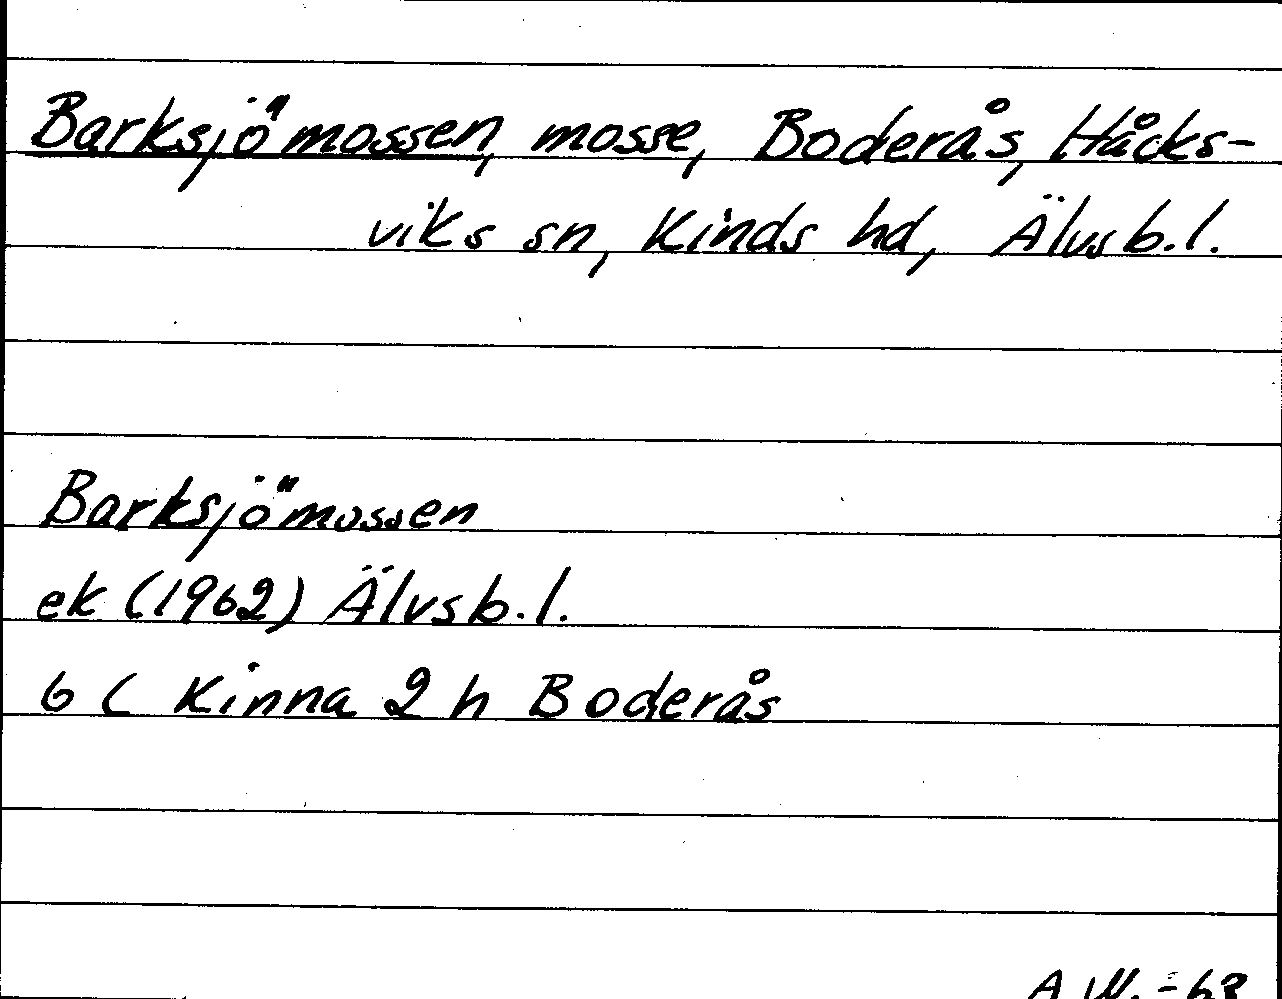 Barksjömossen, mosse, Boderås, Håcks-
viks sn, Kinds hd, Älvsb.l.
Barksjömossen
ek (1962) Älvsb.l.
6 C Kinna 2 h Boderås